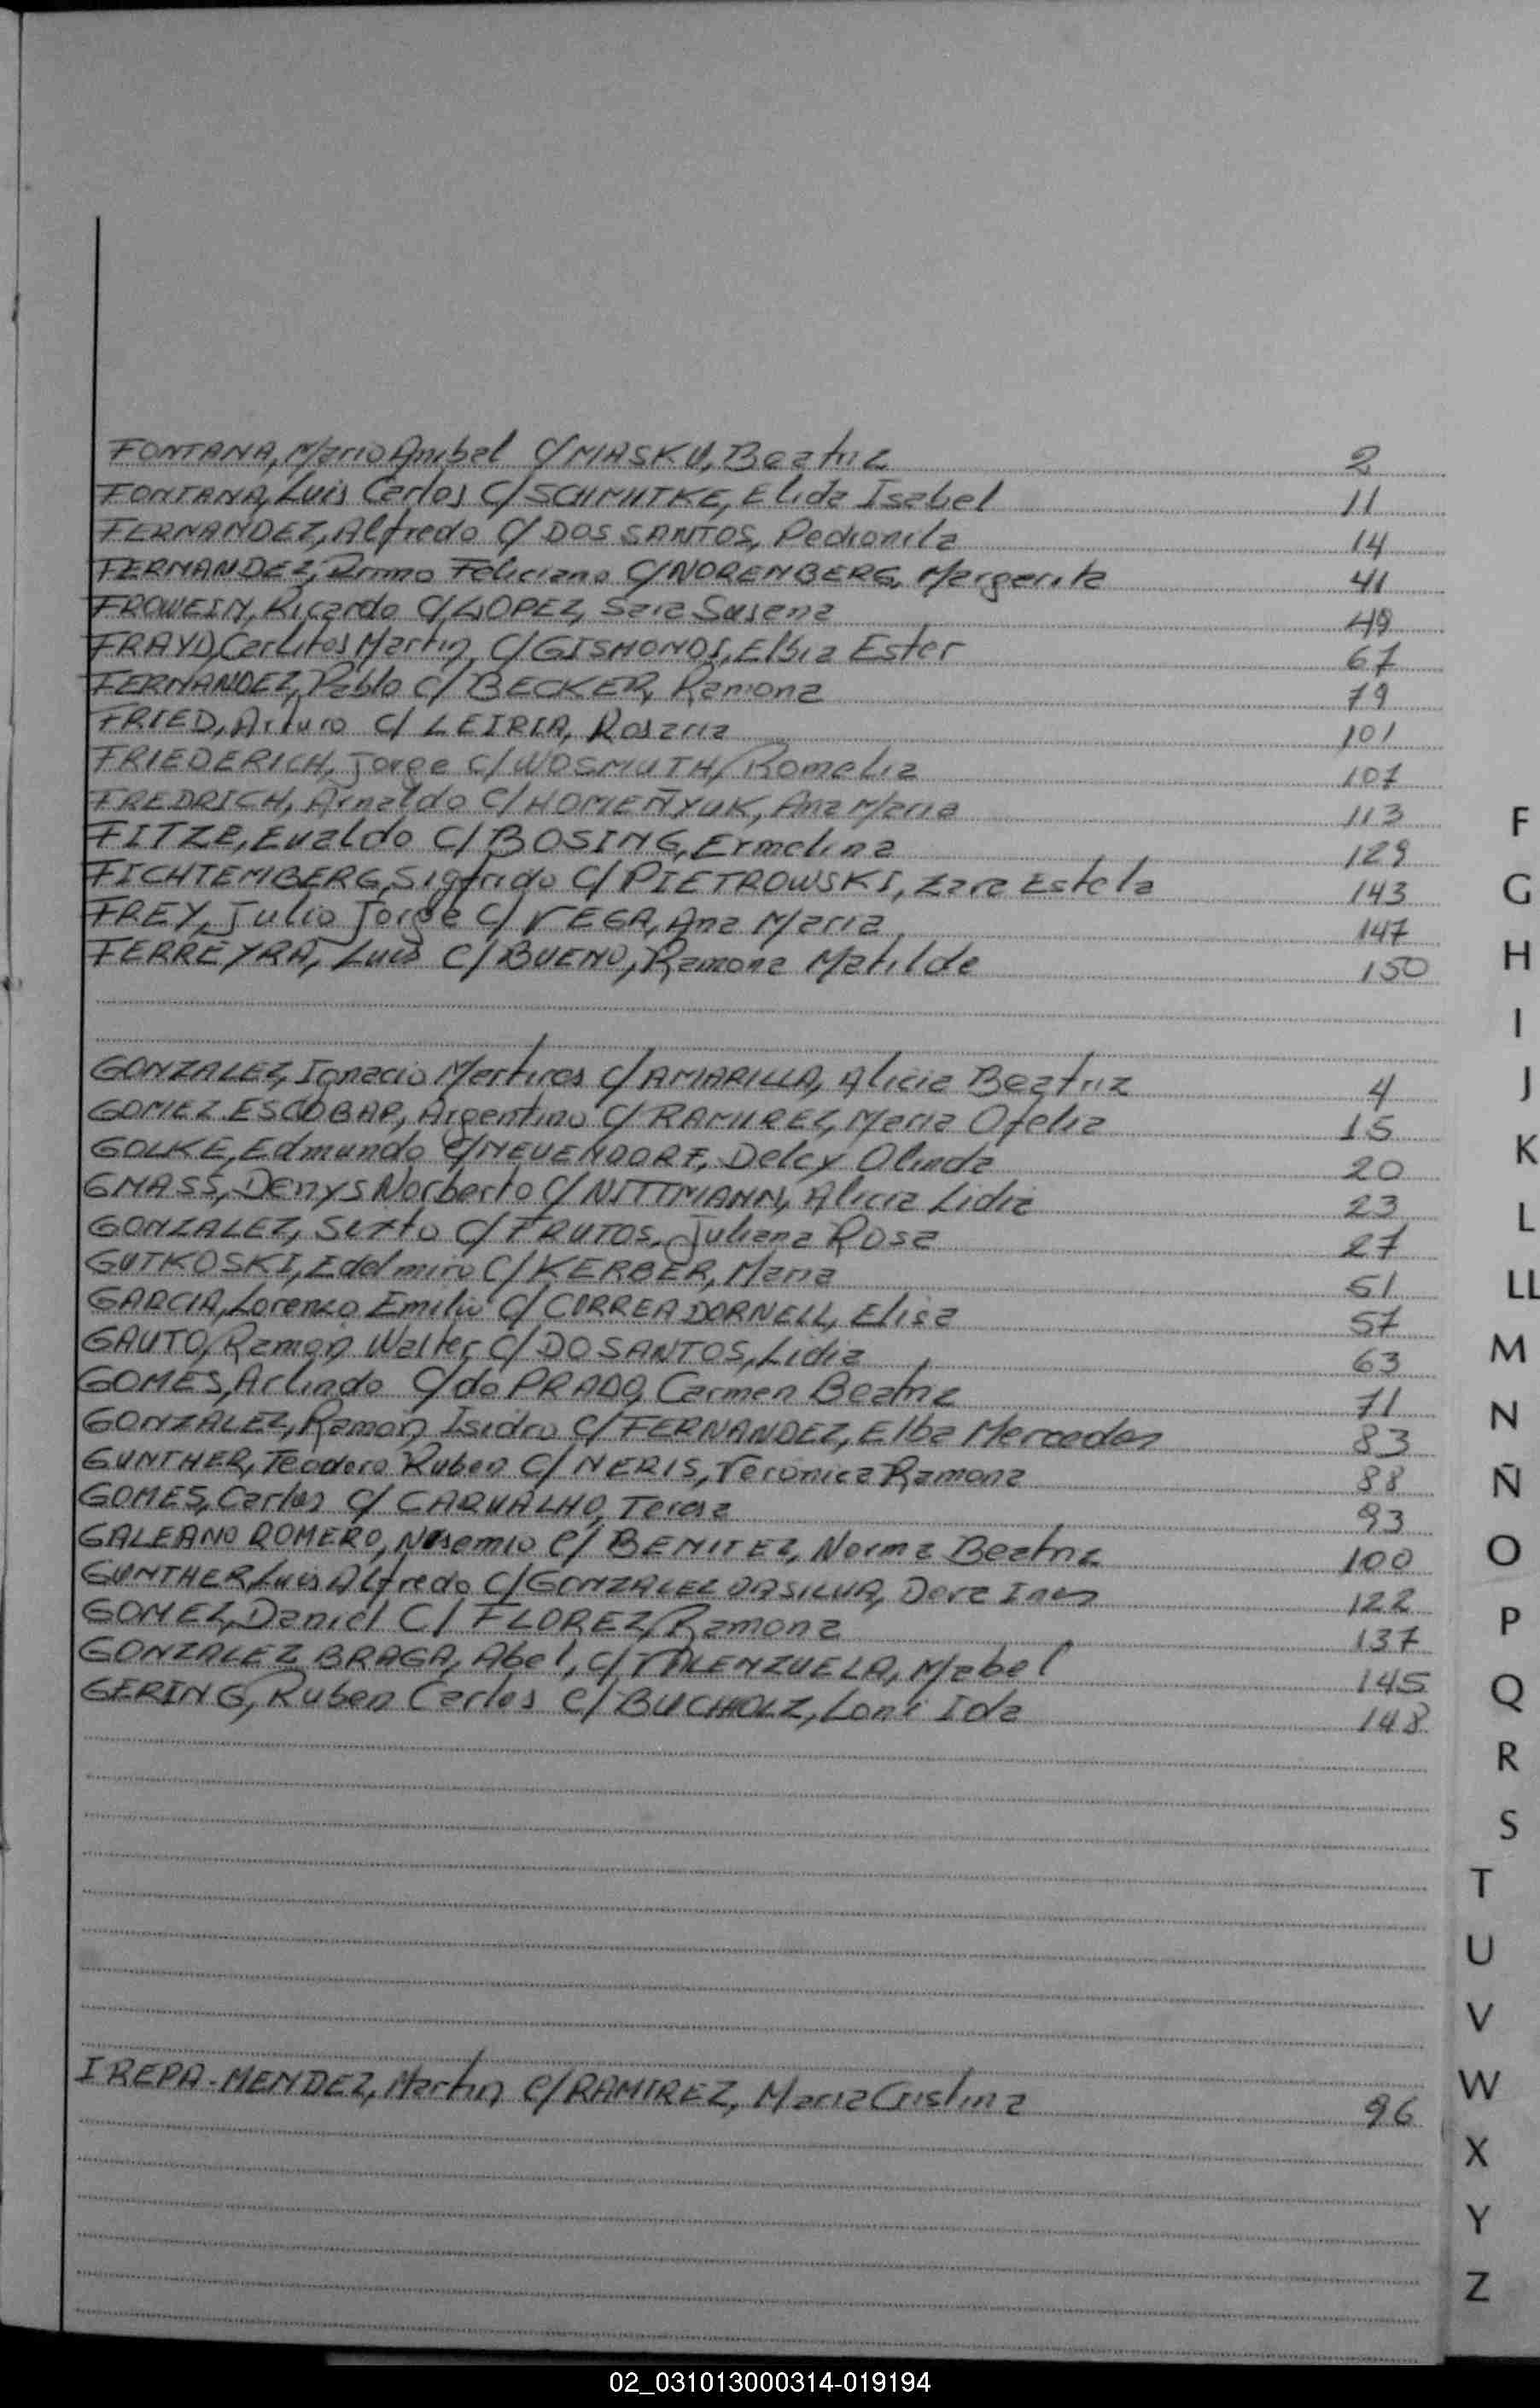 FONTANA, Mario Anibal C/MASKU, Beatriz 2
FONTANA, Luis Carlos C/SCHMUTKE, Elida Isabel 11
FERNANDEZ, Alfredo C/ DOS SANTOS, Pedronila 14
FERNANDEZ, Primo Feliciano C/NORENBERG, Margarita 41
FROWEIN, Ricardo C/LOPEZ, Sara Susana 49
FRAYD, Carlitos Martin C/GISMONDI, Elbia Ester 67
FERNANDEZ, Pablo C/ BECKER, Ramona 79
FRIED, Arturo C/ LEIRIA, Rosaria 101
FRIEDERICH, Jorge C/WOSMUTH, Romelia 107
FREDRICH, Arnaldo C/HOMEÑYUK, Ana Maria 113
FITZE, Evaldo C/ BOSING, Ermelina 129
FICHTEMBERG, Sigfrido C/ PIETROWSKI, Zara Estela 143
FREY, Julio Jorge C/ VEGA, Ana Maria 147
FERREYRA, Luis C/ BUENO, Ramona Matilde 150
GONZALEZ, Ignacio Martires C/AMARILLA, Alicia Beatriz 4
GOMEZ ESCOBAR, Argentino C/ RAMIREZ, Maria Ofelia 15
GOLKE, Edmundo C/NEUENDORF, Delcy Olinda 20
GMASS, Denys Norberto C/ NITTMANN, Alicia Lidia 23
GONZALEZ, Sixto C/ FRUTOS, Juliana Rosa 27
GUTKOSKI, Edelmiro C/ KERBER, Maria 51
GARCIA, Lorenzo Emilio C/ CORREA DORNELL, Elisa 57
GAUTO, Ramon Walter C/ DO SANTOS, Lidia 63
GOMES, Arlindo C/do PRADO, Carmen Beatriz 71
GONZALEZ, Ramon Isidro C/ FERNANDEZ, Elba Mercedes 83
GUNTHER, Teodoro Ruben C/ NERIS, Veronica Ramona 88
GOMES, Carlos C/ CARVALHO, Teresa 93
GALEANO ROMERO, Nosemio C/ BENITEZ, Norma Beatriz 100
GUNTHER, Luis Alfredo C/GONZALEZ DASILVA, Dora Ines 122
GOMEZ, Daniel C/ FLOREZ, Ramona 137
GONZALEZ BRAGA, Abel, C/ VALENZUELA, Mabel 145
GERING, Ruben Carlos C/ BUCHHOLZ, Loni Ida 148
IREPA-MENDEZ, Martin C/RAMIREZ, Maria Cristina 96
F
G
H
I
J
K
L
LL
M
N
Ñ
O
P
Q
R
S
T
U
V
W
X
Y
Z
02_031013000314-019194